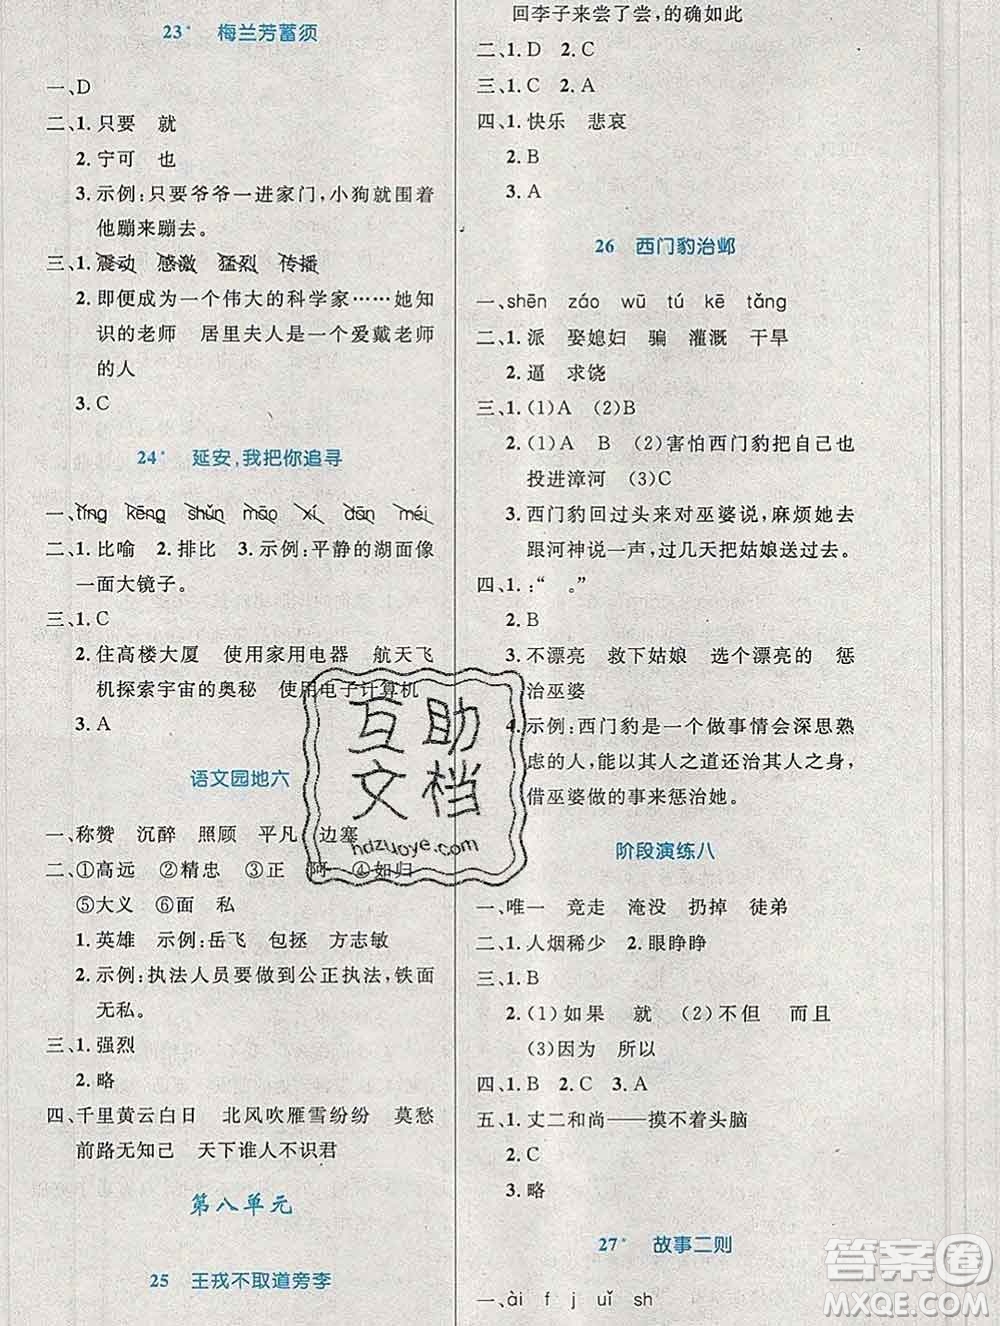 23* 梅兰芳蓄须
一、D
二、1. 只要 就
2. 宁可 也
3. 示例：只要爷爷一进家门，小狗就围着
他蹦来蹦去。
三、1. 震动 感激 猛烈 传播
2. 即便成为一个伟大的科学家……她知
识的老师 居里夫人是一个爱戴老师
的人
3. C
24* 延安，我把你追寻
一、tíng kēng shǔn māo xí dān méi
二、1. 比喻 2. 排比 3. 示例：平静的湖面像
一面大镜子。
三、1. C
2. 住高楼大厦 使用家用电器 航天飞
机探索宇宙的奥秘 使用电子计算机
3. A
语文园地六
一、称赞 沉醉 照顾 平凡 边塞
二、①高远 ②精忠 ③正 阿 ④如归
⑤大义 ⑥面 私
1. 英雄 示例：岳飞 包拯 方志敏
2. 示例：执法人员要做到公正执法，铁面
无私。
三、1. 强烈
2. 略
四、千里黄云白日 北风吹雁雪纷纷 莫愁
前路无知己 天下谁人不识君
第八单元
25 王戎不取道旁李
回李子来尝了尝，的确如此
二、1. D 2. C
三、1. C 2. A
四、1. 快乐 悲哀
2. B
3. A
26 西门豹治邺
一、shēn záo wū tú kē tǎng
二、1. 派 娶媳妇 骗 灌溉 干旱
2. 逼 求饶
三、1. (1)A (2)B
2. (1)A B (2)害怕西门豹把自己也
投进漳河 (3)C
3. 西门豹回过头来对巫婆说，麻烦她去
跟河神说一声，过几天把姑娘送过去。
四、1. ：“ 。”
2. B
3. 不漂亮 救下姑娘 选个漂亮的 惩
治巫婆
4. 示例：西门豹是一个做事情会深思熟
虑的人，能以其人之道还治其人之身，
借巫婆做的事来惩治她。
阶段演练八
一、唯一 竞走 淹没 扔掉 徒弟
二、1. 人烟稀少 2. 眼睁睁
三、1. B
2. (1)如果 就 (2)不但 而且
(3)因为 所以
四、1. B 2. C 3. A
五、1. 丈二和尚——摸不着头脑
2. C
3. 略
27* 故事二则
一、ài f j uǐ sh
互助
文档
hdzuoye.com
答案圈
MXQE.COM